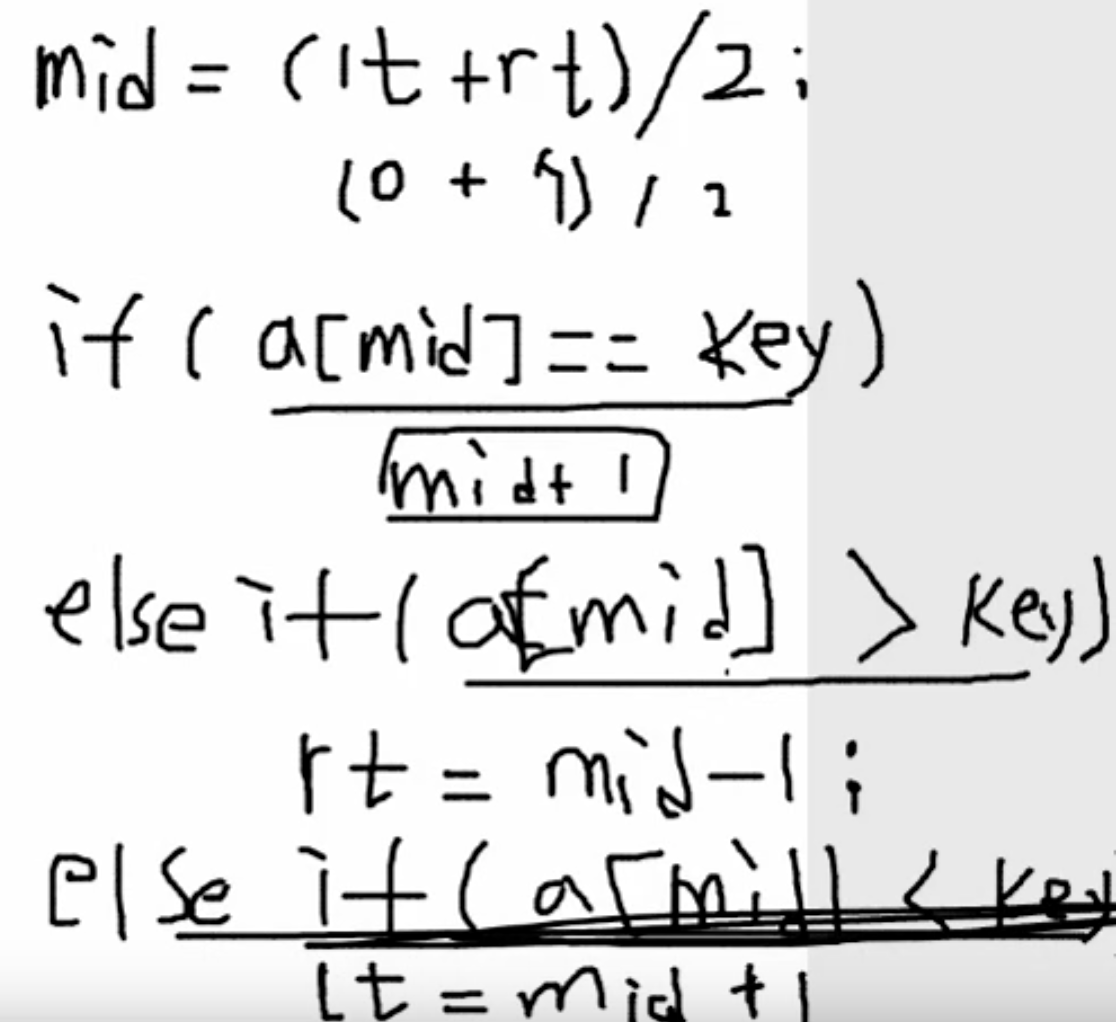 mid = (lt +rt)/2;
(0 + 9) / 2
if ( a[mid] == key)
mid+ 1
else if( a[mid] > key)
rt = mid-1;
else if( a[mid] < key
lt = mid +1